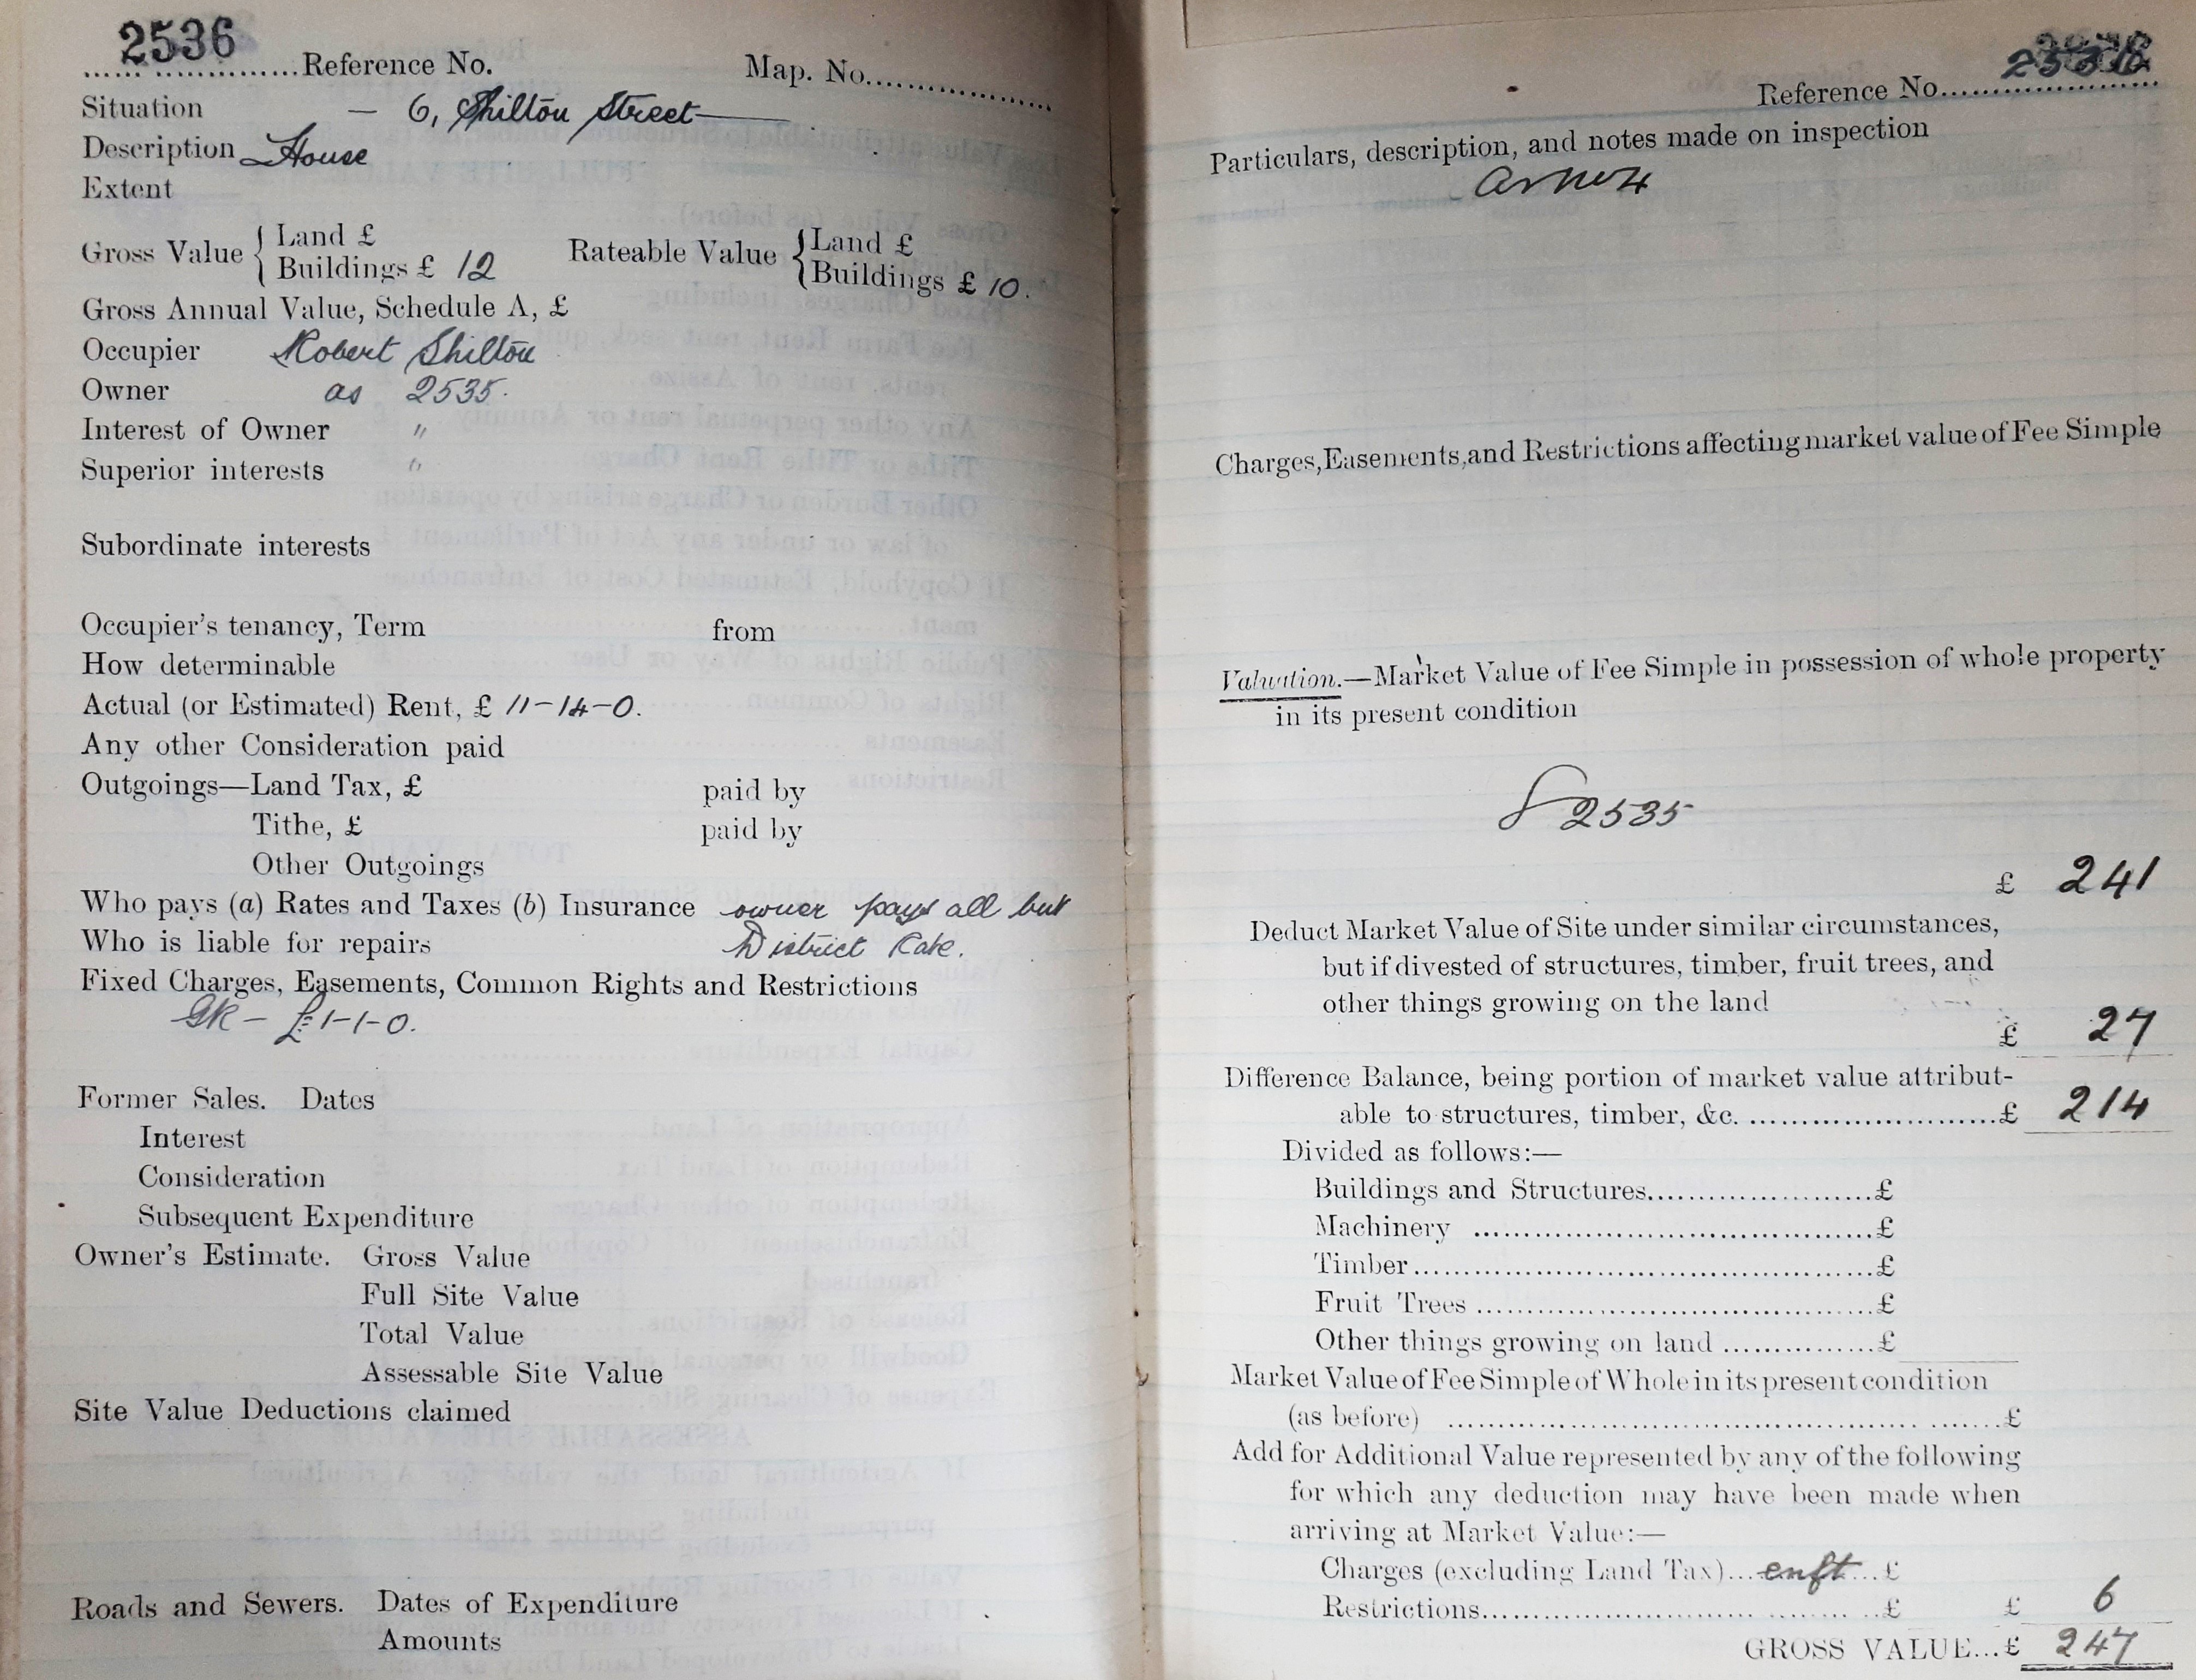 2536
Reference No. Map. No.
Situation — 6, Shilton Street
Description House
Extent
Gross Value { Land £
Buildings £ 12
Rateable Value { Land £
Buildings £ 10.
Gross Annual Value, Schedule A, £
Occupier Robert Shilton
Owner as 2535.
Interest of Owner "
Superior interests "
Subordinate interests
Occupier's tenancy, Term from
How determinable
Actual (or Estimated) Rent, £ 11-14-0.
Any other Consideration paid
Outgoings—Land Tax, £ paid by
Tithe, £ paid by
Other Outgoings
Who pays (a) Rates and Taxes (b) Insurance owner pays all but
Who is liable for repairs District Rate.
Fixed Charges, Easements, Common Rights and Restrictions
GR - £1-1-0.
Former Sales. Dates
Interest
Consideration
Subsequent Expenditure
Owner's Estimate. Gross Value
Full Site Value
Total Value
Assessable Site Value
Site Value Deductions claimed
Roads and Sewers. Dates of Expenditure
Amounts
Reference No. 2536
Particulars, description, and notes made on inspection
Charges, Easements, and Restrictions affecting market value of Fee Simple
Valuation.—Market Value of Fee Simple in possession of whole property
in its present condition
2535
£ 241
Deduct Market Value of Site under similar circumstances,
but if divested of structures, timber, fruit trees, and
other things growing on the land
£ 27
Difference Balance, being portion of market value attribut-
able to structures, timber, &c. £ 214
Divided as follows:—
Buildings and Structures £
Machinery £
Timber £
Fruit Trees £
Other things growing on land £
Market Value of Fee Simple of Whole in its present condition
(as before) £
Add for Additional Value represented by any of the following
for which any deduction may have been made when
arriving at Market Value:—
Charges (excluding Land Tax) enft £
Restrictions £ £ 6
GROSS VALUE...£ 247